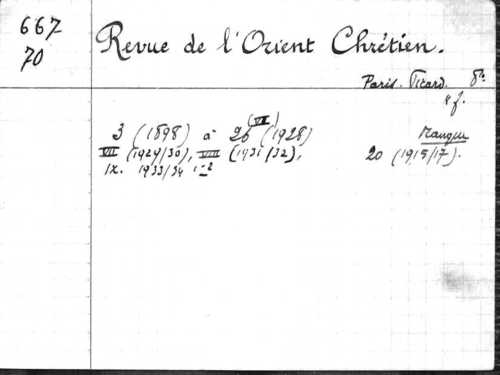 667
70
Revue de l'Orient Chrétien.
Paris. Picard. 8º
(VI)
3 (1898) à 26 (1928)
VII (1929/30), VIII (1931/32),
IX. 1933/34 1-2
Manque
20 (1915/17).